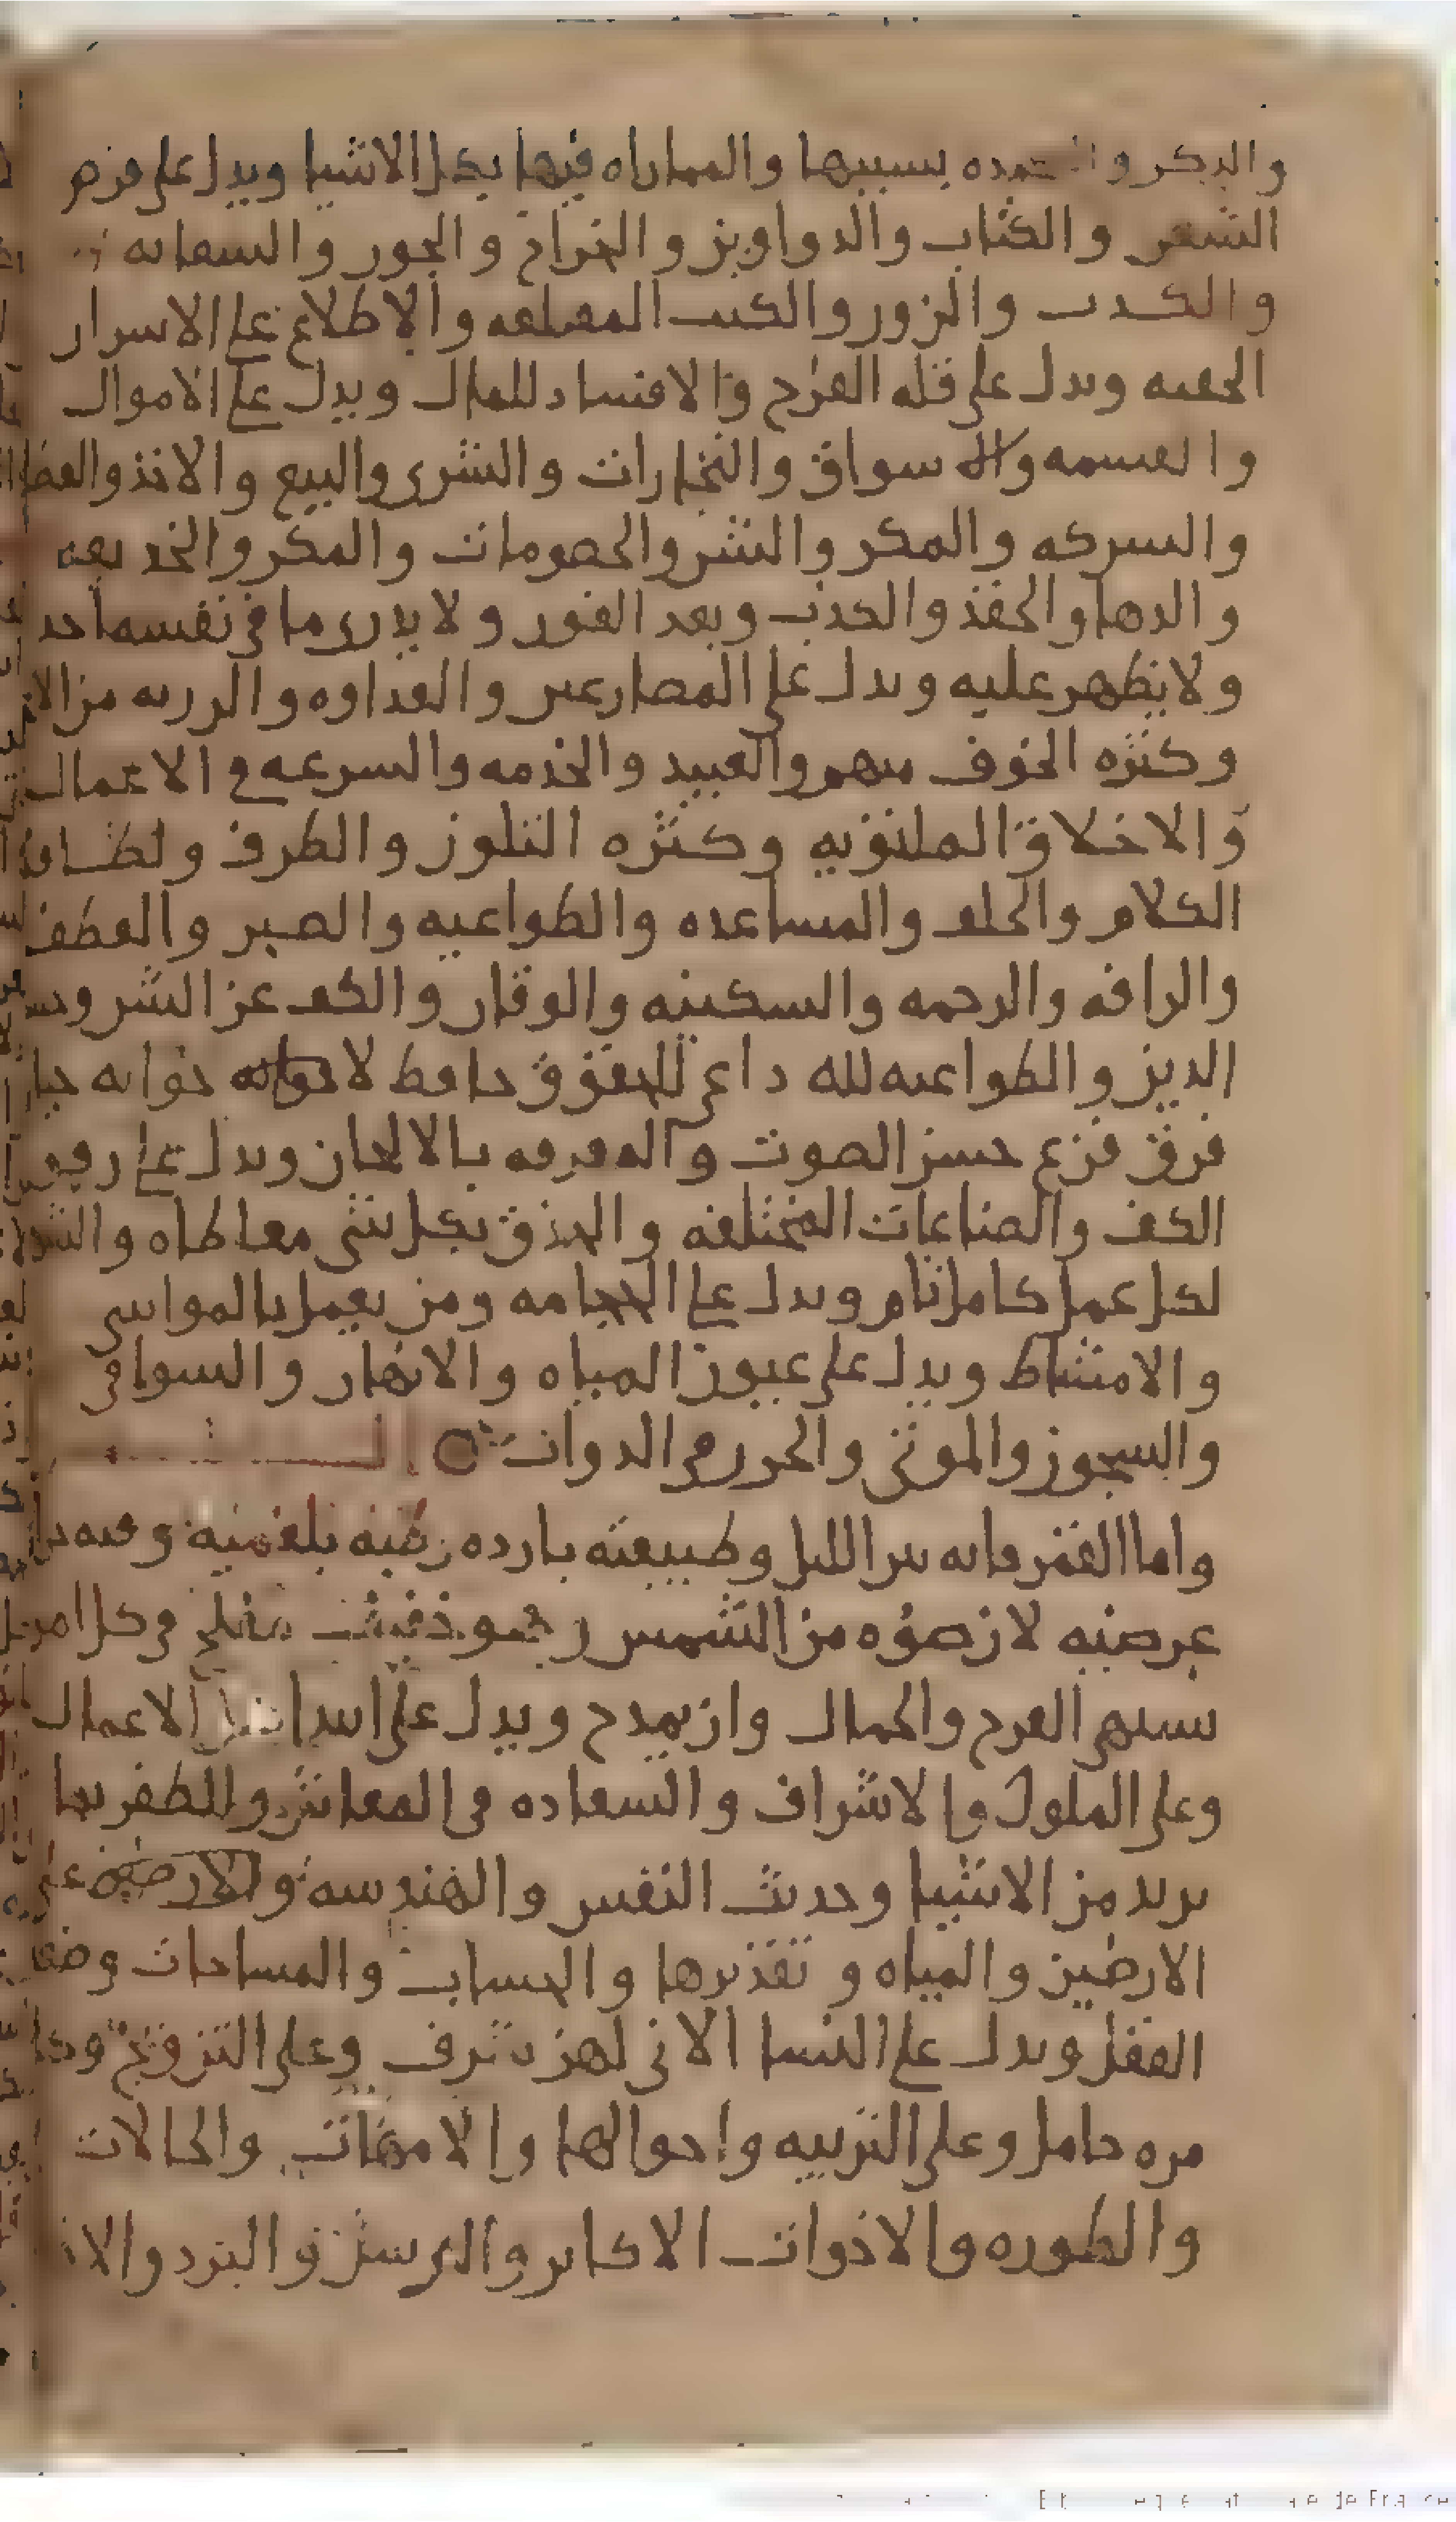 والدكر و بسببها والمماراه فيها بكل الاشيا ويدل على قرض
الشعر والكتاب والدواوين والخراج والجور والسعايه
والكدب والزور والكتب المفتعله والاطلاع على الاسرار
الخفيه ويدل على قله الفرح والافساد للمال ويدل على الاموال
والقسمه والاسواق والتجارات والشرى والبيع والاخذ والعطا
والسركه والمكر والشر والخصومات والمكر والخديعه
والدها والحقد والكذب وبعد الغور ولا يدرى ما فى نفسه احد
ولا يظهر عليه ويدل على المصارعين والعداوه و من
وكثره الخوف منهم والعبيد والخدمه والسرعه فى الاعمال
والاخلاق الملتويه وكثره التلون والظرف ولطافه
الكلام والحلف والمساعده والطواعيه والصبر والعطف
والرافه والرحمه والسكينه والوقار والكف عن الشر وحسن
الدين والطواعيه لله داعى للحقوق حافظ لاخوانه خوانه
فرق فزع حسن الصوت والمعرفه بالالحان ويدل على
الكف والصناعات المختلفه والحذق بكل شى معاطاه
لكل عمل كامل تام ويدل على الحجامه ومن يعمل بالمواسى
والامشاط ويدل على عيون المياه والانهار والسواقى
والسجون والموتى الدوات
واما القمر فانه نير الليل وطبيعته بارده رطبه بلغميه وفيه
عرضيه لان ضوه من الشمس خفيف فى كل امر
يشتهى الفرح والجمال وان يمدح ويدل على ابتدا الاعمال
وعلى الملوك والاشراف والسعاده فى المعاش والظفر بما
يريد من الاشيا وحديث النفس والهندسه و
الارضين والمياه وتقديرها والحساب والمساحات وضعف
العقل ويدل على النسا الاتى لهن شرف وعلى التزويج وكل
مره حامل وعلى التربيه واحوالها والامهات والخالات
والاخوات الاكابر والبرد